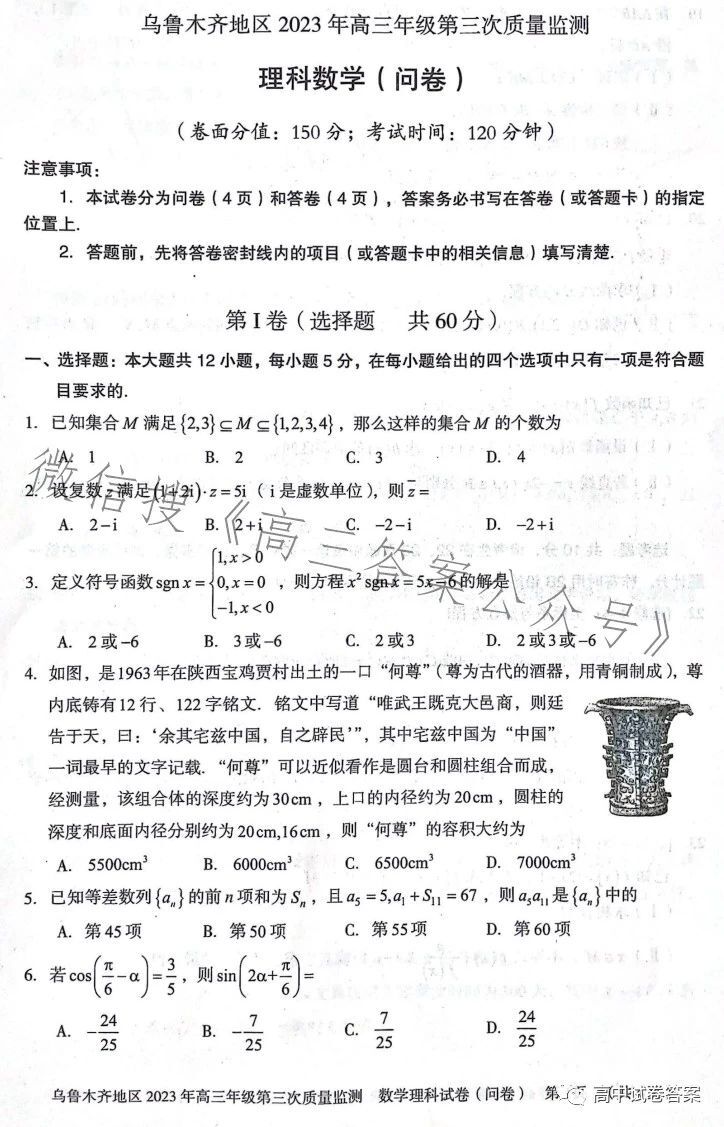 乌鲁木齐地区 2023 年高三年级第三次质量监测
理科数学（问卷）
（卷面分值：150 分；考试时间：120 分钟）
注意事项：
1. 本试卷分为问卷（4 页）和答卷（4 页），答案务必书写在答卷（或答题卡）的指定
位置上.
2. 答题前，先将答卷密封线内的项目（或答题卡中的相关信息）填写清楚.
第 I 卷（选择题 共 60 分）
一、选择题：本大题共 12 小题，每小题 5 分，在每小题给出的四个选项中只有一项是符合题
目要求的.
1. 已知集合 M 满足 {2,3}⊆M⊆{1,2,3,4}，那么这样的集合 M 的个数为
A. 1 B. 2 C. 3 D. 4
2. 设复数 z 满足(1+2i)·z=5i（i 是虚数单位），则 z̄=
A. 2−i B. 2+i C. −2−i D. −2+i
3. 定义符号函数 sgn x = {1, x>0; 0, x=0; −1, x<0，则方程 x² sgn x = 5x−6 的解是
A. 2 或 −6 B. 3 或 −6 C. 2 或 3 D. 2 或 3 或 −6
4. 如图，是1963年在陕西宝鸡贾村出土的一口“何尊”（尊为古代的酒器，用青铜制成），尊
内底铸有 12 行、122 字铭文. 铭文中写道“唯武王既克大邑商，则廷
告于天，曰：‘余其宅兹中国，自之辟民’”，其中宅兹中国为“中国”
一词最早的文字记载. “何尊”可以近似看作是圆台和圆柱组合而成，
经测量，该组合体的深度约为 30cm，上口的内径约为 20cm，圆柱的
深度和底面内径分别约为 20cm,16cm，则“何尊”的容积大约为
A. 5500cm³ B. 6000cm³ C. 6500cm³ D. 7000cm³
5. 已知等差数列{aₙ}的前 n 项和为 Sₙ，且 a₅=5,a₁+S₁₁=67，则 a₅a₁₁ 是{aₙ}中的
A. 第 45 项 B. 第 50 项 C. 第 55 项 D. 第 60 项
6. 若 cos(π/6−α)=3/5，则 sin(2α+π/6)=
A. −24/25 B. −7/25 C. 7/25 D. 24/25
微信搜《高三答案公众号》
乌鲁木齐地区 2023 年高三年级第三次质量监测 数学理科试卷（问卷） 第
高中试卷答案